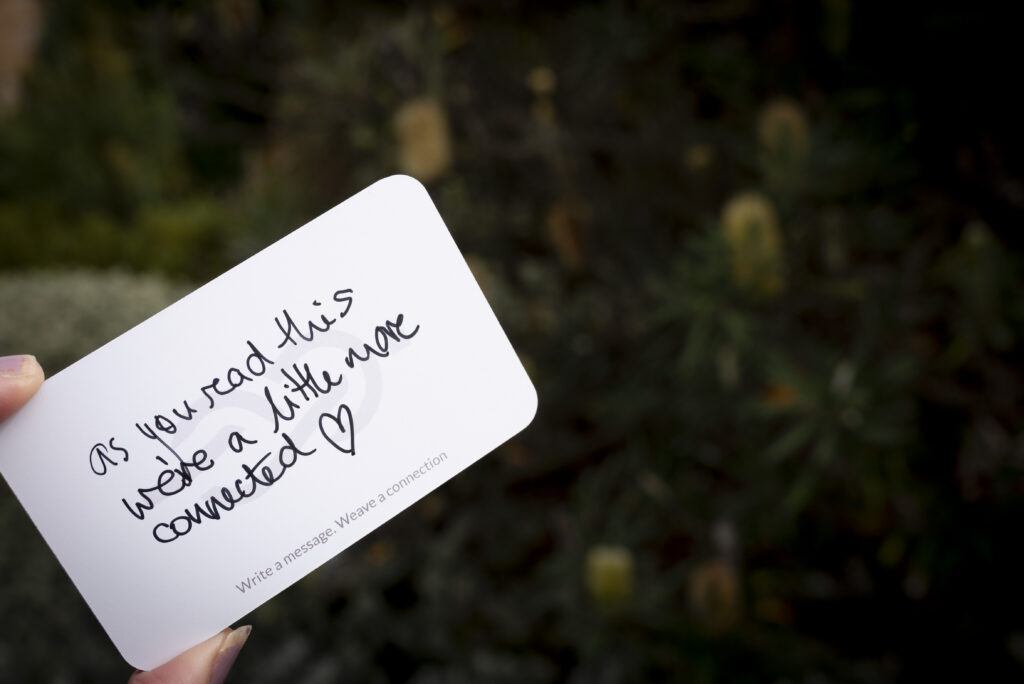 as you read this
we're a little more
connected ♡
Write a message. Weave a connection